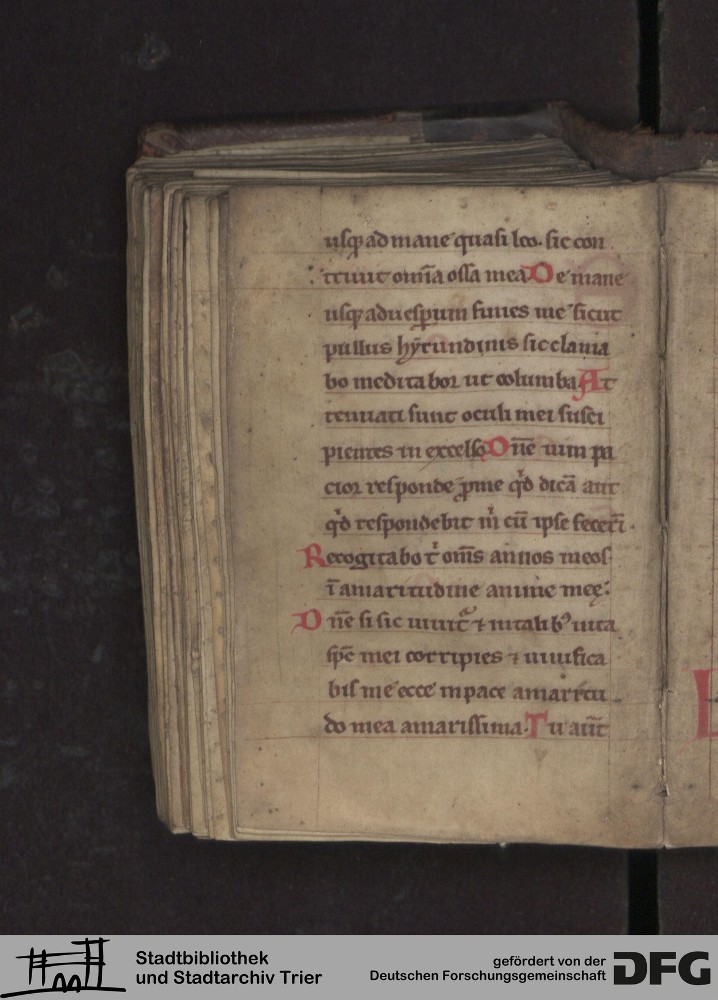 usq; ad mane quasi leo. sic con
triuit om̅ia ossa mea De mane
usq; ad uesp̲um finies me sicut
pullus hẏrundinis sic clama
bo meditabor ut columba At
tenuati sunt oculi mei susci
pientes in excelso Dn̅e uim pa
cior responde p̲ me qͥd dicā aut
qͥd respondebit mͥ cū ipse fecerī.
Recogitabo tͥ om̅s annos meos
ī amaritudine anime meę:
Dn̅e si sic uiuitᷓ ⁊ in talibꝰ uita
sp̅c mei corripies ⁊ uiuifica
bis me ecce in pace amaritu
do mea amarissima. Tu aūt
Stadtbibliothek
und Stadtarchiv Trier
gefördert von der
Deutschen Forschungsgemeinschaft
DFG